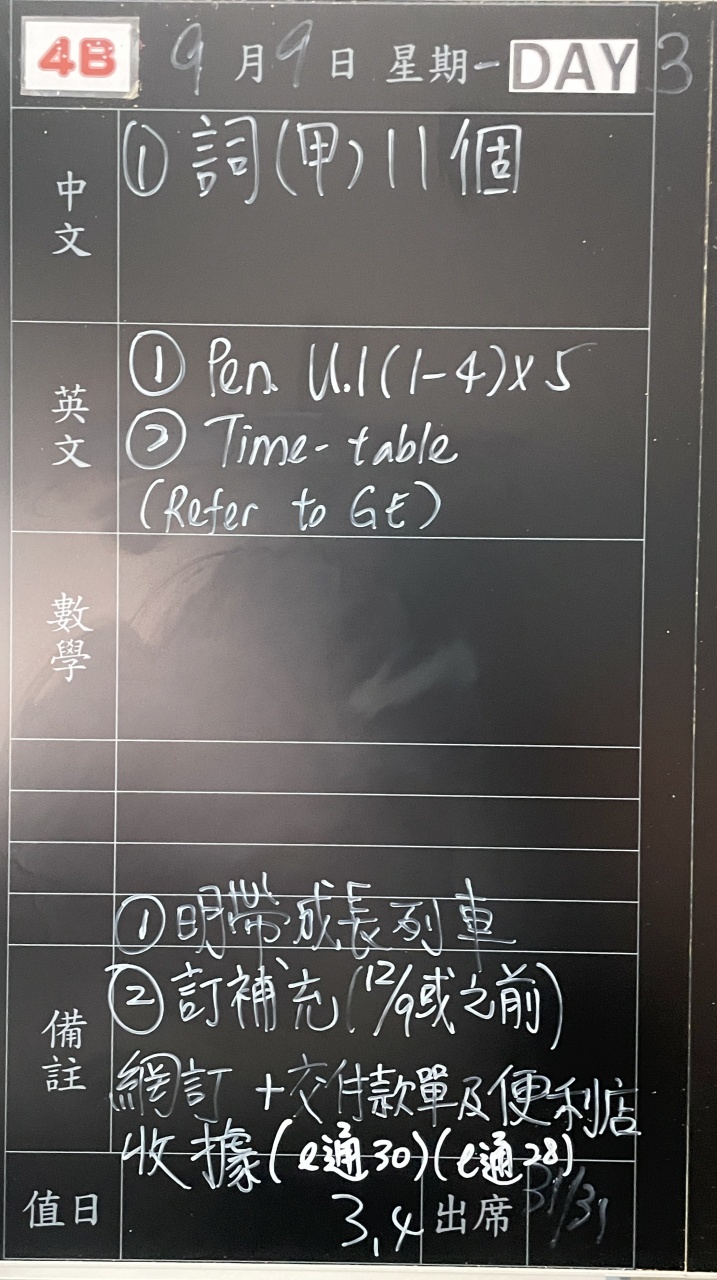 4B 9月9日 星期一 DAY 3
中文
① 詞(甲)11個
英文
① Pen. U.1(1-4)x5
② Time-table
(Refer to GE)
數學
① 明帶成長列車
備註
② 訂補充(12/9或之前)
網訂 + 交付款單及便利店
收據(e通30)(e通28)
值日 3,4 出席 31/31